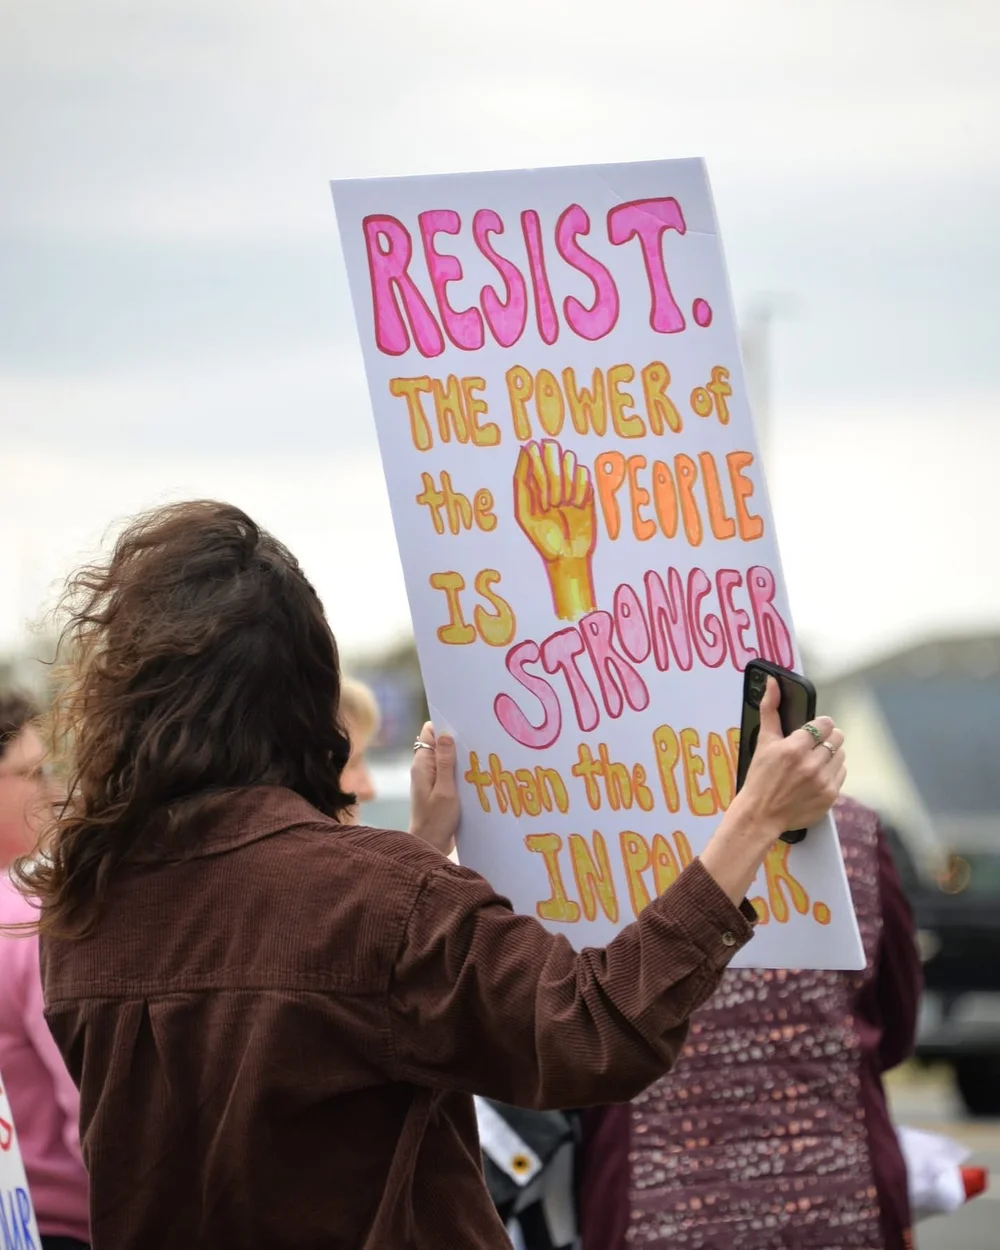 RESIST.
THE POWER of
the PEOPLE
IS STRONGER
than the PEOP
IN POWER.